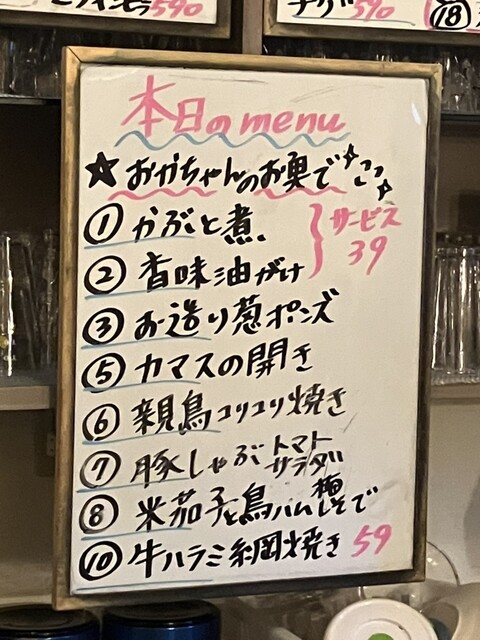 590
590
18
本日のmenu
★おかちゃんのお奥で
① かぶと煮
サービス
39
② 香味油がけ
③ お造り葱ポンズ
⑤ カマスの開き
⑥ 親鳥コリコリ焼き
⑦ 豚しゃぶトマト
サラダ
⑧ 米茄子と鳥ハム梅しそで
⑩ 牛ハラミ網焼き 59